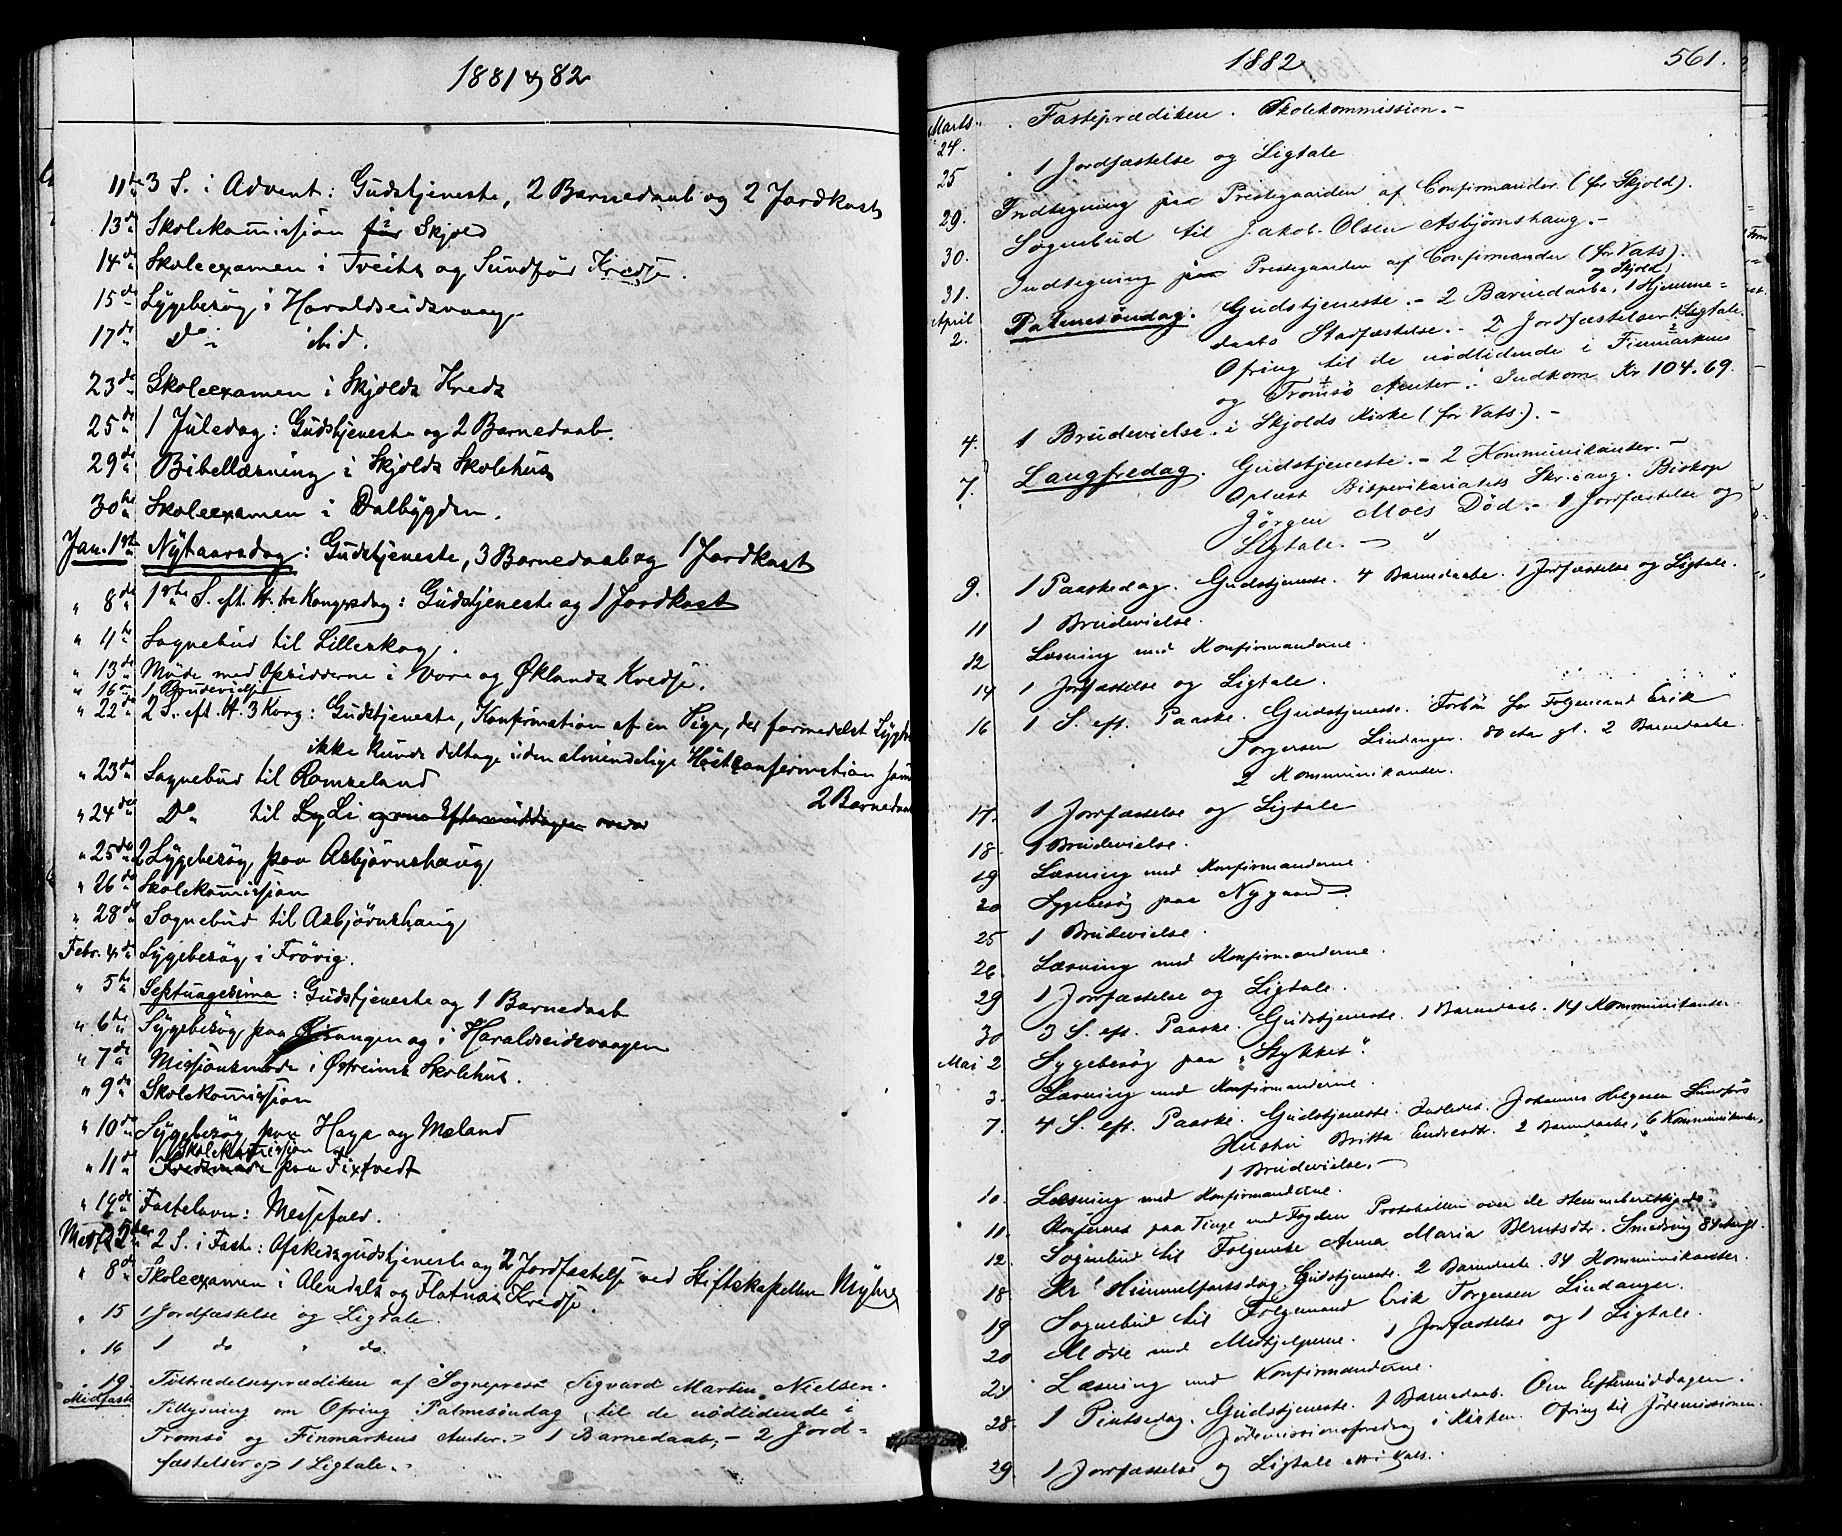 1881 & 82
11te 3 S. i Advent: Gudstjeneste, 2 Barnedaab og 2 Jordkast
13de Skolekommission for Skjold
14de Skoleexamen i Tveits og Sundför Kredse.
15de Sygebesøg i Haraldseidsvaag.
17de Do i ibid.
23de Skoleexamen i Skjolds Kreds
25de 1 Juledag: Gudstjeneste og 2 Barnedaab.
29de Bibellæsning i Skjolds Skolehus
30te Skoleexamen i Dalbygden.
Jan. 1ste Nytaarsdag: Gudstjeneste, 3 Barnedaab og 1 Jordkast
" 8de 1ste S. eft. H. tre Kongersdag: Gudstjeneste og 1 Jordkast
" 11te Sognebud til Lilleskog.
" 13de Møde med Opsidderne i Vore og Øklands Kredse.
" 16 1 Brudevielse
" 22de 2 S. eft. H. 3 Kong: Gudstjeneste, Konfirmation af en Pige, der formedelst Sygdom
ikke kunde deltage i den almindelige Høstconfirmation samt
2 Barnedaab
" 23de Sognebud til Romseland
" 24de Do til Li
" 25de 2 Sygebesøg paa Asbjørnshaug
" 26de Skolekommission
" 28de Sognebud til Asbjørnshaug
Febr. 4de Sygebesøg i Frövig.
" 5te Septuagesima: Gudstjeneste og 1 Barnedaab
" 6te Sygebesøg paa og i Haraldseidsvaagen
" 7de Missionsmøde i Østreims Skolehus.
" 9de Skolekommission
" 10de Sygebesøg paa Haga og Mæland
Skolekommission
" 11de Kredsmøde paa Fixtvedt
" 19de Fastelavn: Messefald.
5te 2 S. i Faste: Afskedsgudstjeneste og 2 Jordfæstelse ved Stiftskapellan Myhre
" 8de Skoleexamen i Alendals og Flatnæs Kredse.
" 15 1 Jordfæstelse og Ligtale.
" 16 1 do " do
" 19. Tiltrædelsesprædiken af Sognepræst Sigvard Martin Nielsen.
Midfaste Tillysning om Ofring Palmesöndag til de nödlidende i
Tromsö og Finmarkens Amter. 1 Barnedaab, - 2 Jord=
fæstelser og 1 Ligtale.
1882 561.
Marts
24. Fasteprædiken. Skolekommission. -
25 1 Jordfæstelse og Ligtale
29. Indtegning paa Prestegaarden af Confirmander (for Skjold).
30. Sognebud til Jakob Olsen Asbjörnshaug. -
31. Indtegning paa Prestegaarden af Confirmander (for Vats).
og Skjold
April
2. Palmesöndag. Gudstjeneste. - 2 Barnedaabe, 1 Hjemme=
daabs Stadfæstelse. - 2 Jordfæstelser 1 Ligtale.
Ofring til de nödlidende i Finmarkens
og Tromsö Amter. Indkom Kr 104.69.
4. 1 Brudevielse i Skjolds Kirke (for Vats). -
7. Langfredag. Gudstjeneste. - 2 Kommunikanter. -
Oplæst Bispevikariatets Skr. ang. Biskop
Jörgen Moes Död. - 1 Jordfæstelse og
Ligtale. -
9. 1 Paaskedag. Gudstjeneste. 4 Barnedaabe. 1 Jordfæstelse og Ligtale.
11 1 Brudevielse.
12 Læsning med Konfirmanderne.
14 1 Jordfæstelse og Ligtale.
16 1 S. eft. Paaske. Gudstjeneste. Forbön for Folgemand Erik
Torgersen Lindanger. 80 Aar gl. 2 Barnedaabe.
2 Kommunikanter.
17. 1 Jordfæstelse og Ligtale
18. 1 Brudevielse.
19 Læsning med Konfirmanderne.
20 Sygebesög paa Nygaard
25 1 Brudevielse.
26. Læsning med Konfirmanderne.
29 1 Jordfæstelse og Ligtale.
30 3 S. eft. Paaske. Gudstjeneste. 1 Barnedaab. 14 Kommunikanter
Mai 2 Sygebesög paa "Stykket".
3. Læsning med Konfirmanderne.
7. 4 S. eft. Paaske. Gudstjeneste. Johannes Helgesen Sundförs
Hustru Britta Endresdtr. 2 Barnedaabe, 6 Kommunikanter,
1 Brudevielse. -
10. Læsning med Konfirmanderne.
11. Konfereret paa Tinge med Fogden Protokollen over de Stemmeberettigede.
12. Sognebud til Folgemd. Anna Maria Berntsdtr. Smedsvig 84 Aar gl.
18. Kr. Himmelfartsdag. Gudstjeneste. 2 Barnedaabe. 34 Kommunikanter.
19 Sognebud til Folgemand Erik Torgersen Lindanger.
20 Möde med Medhjelperne. 1 Jordfæstelse og 1 Ligtale.
24 Læsning med Konfirmanderne.
28. 1 Pintsedag. Gudstjeneste. 1 Barnedaab. Om Eftermiddagen
Jödemissionsforedrag i Kirken. Ofring til Jödemissionen.
29. 1 Jordfæstelse og Ligtale i Vats.